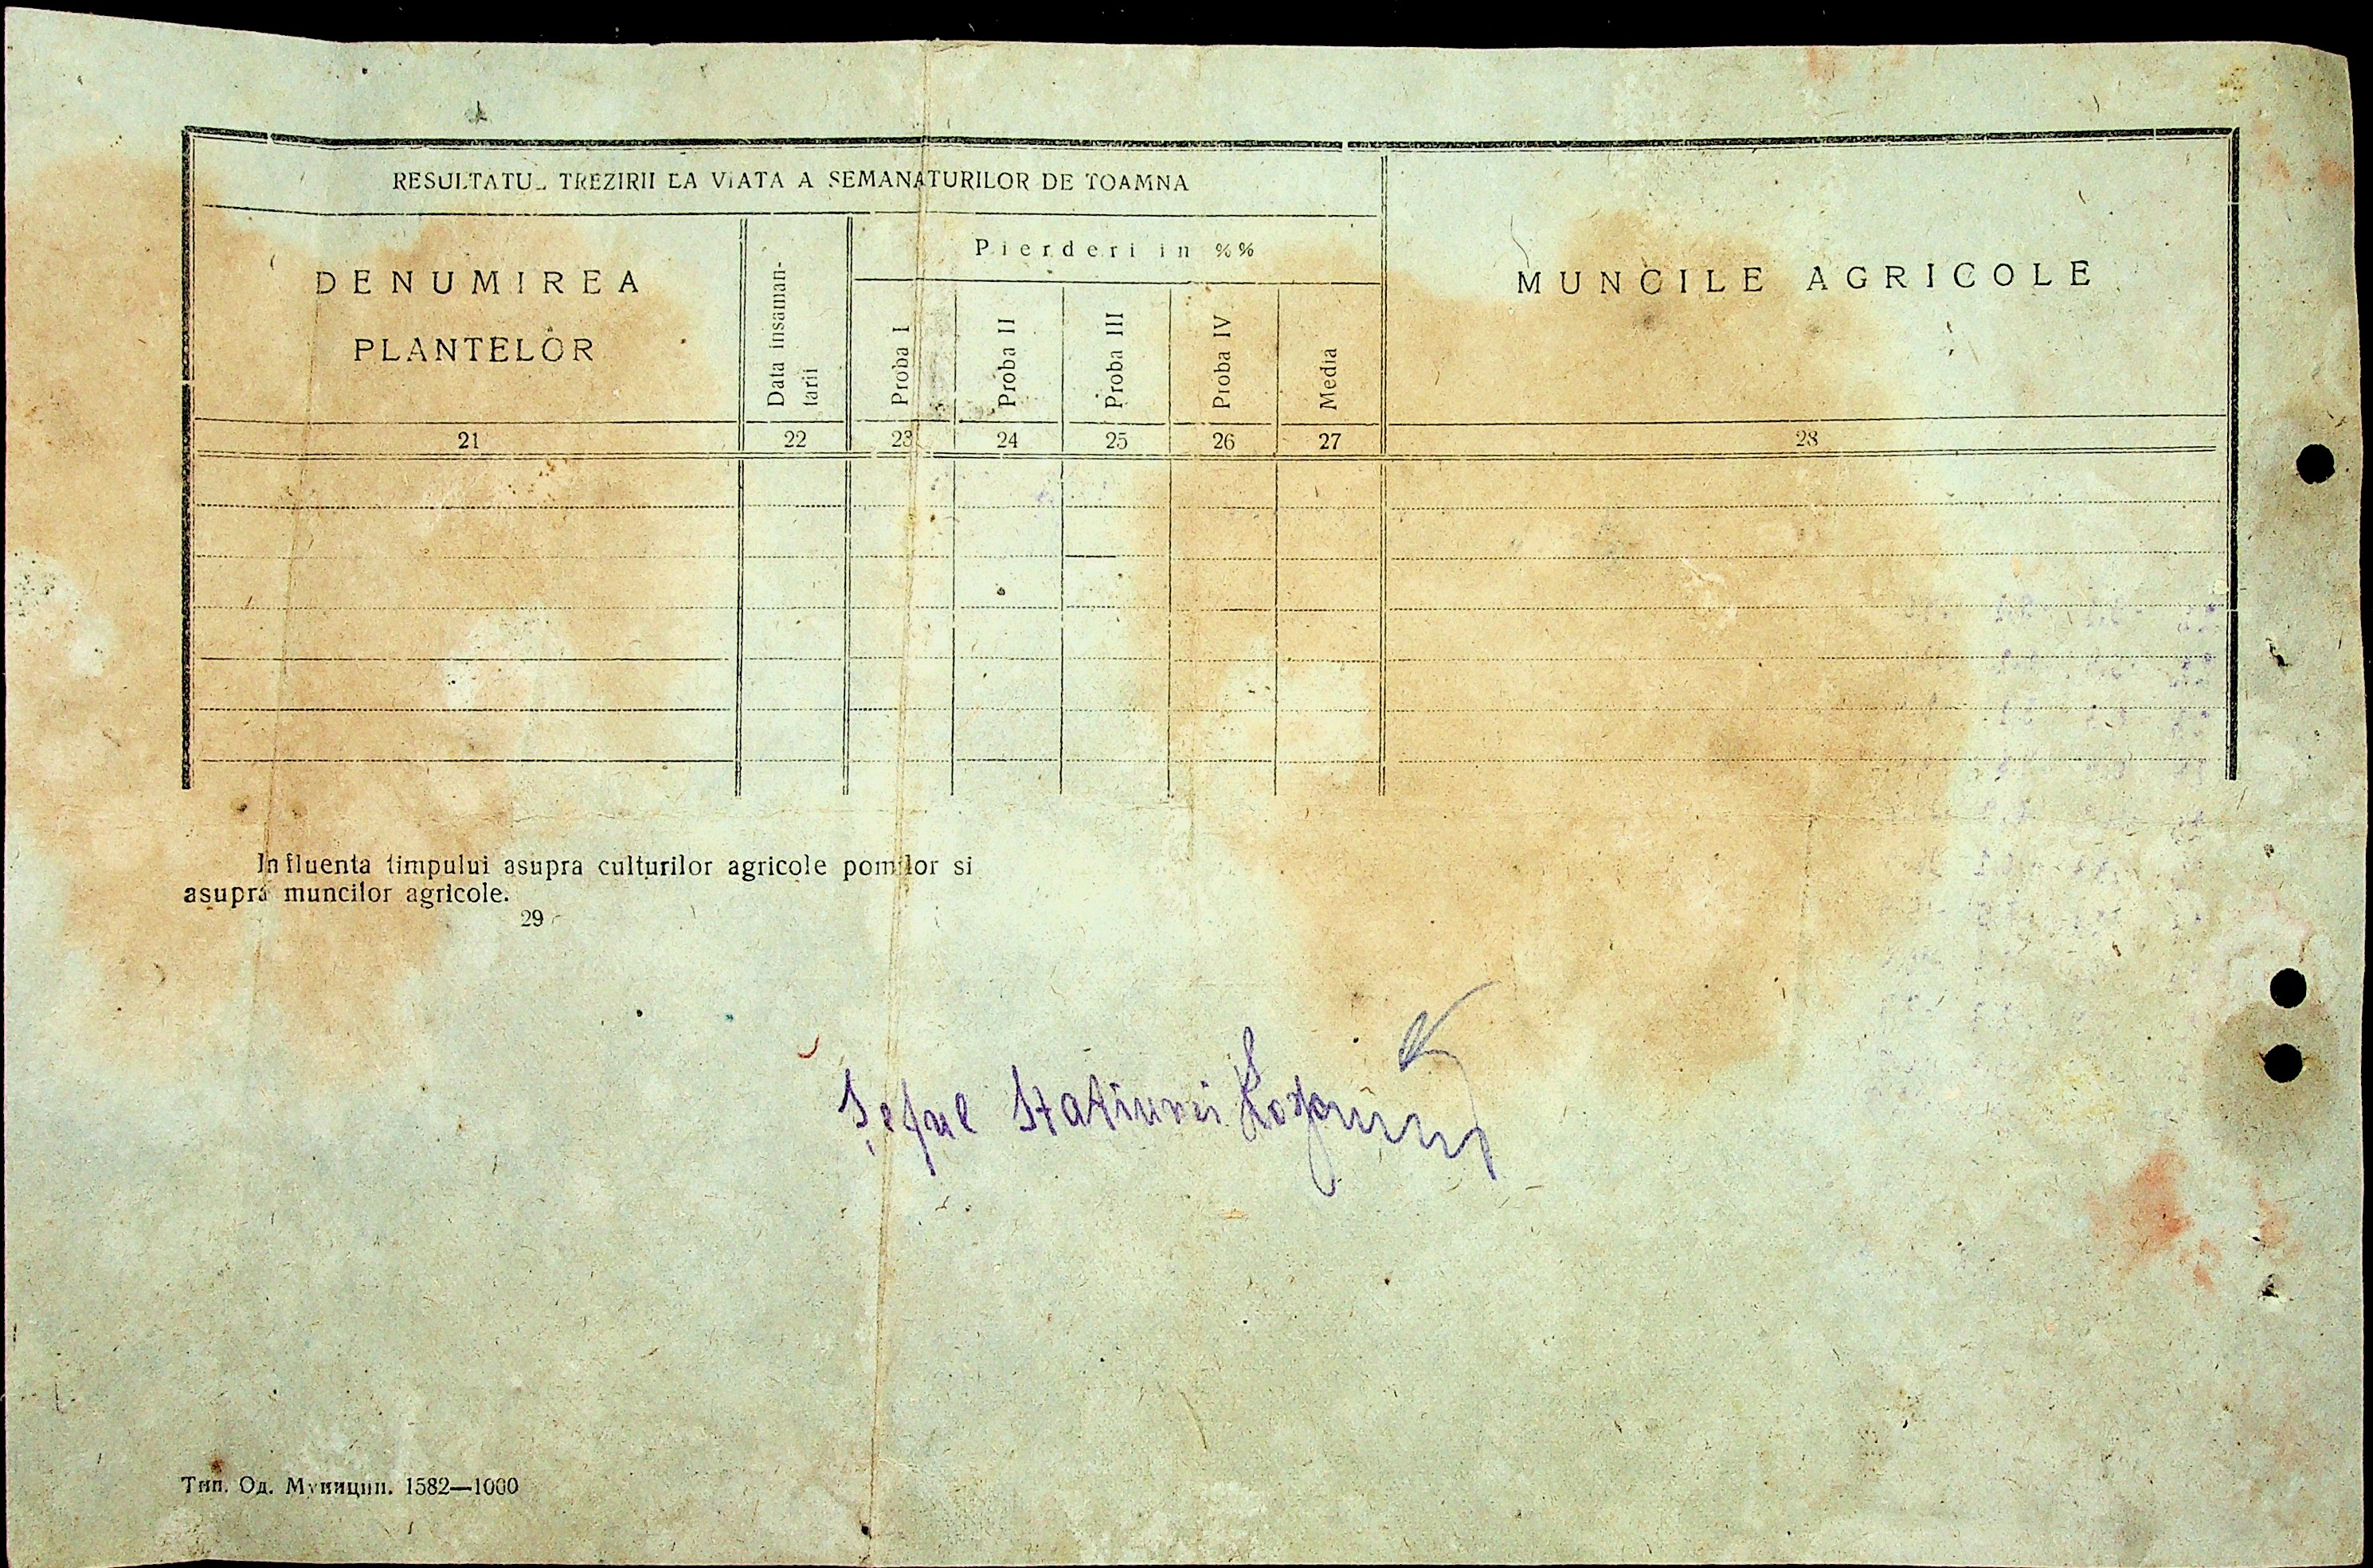 RESULTATUL TREZIRII LA VIATA A SEMANATURILOR DE TOAMNA
DENUMIREA
PLANTELOR
Data insaman-
tarii
Pierderi in %%
Proba I
Proba II
Proba III
Proba IV
Media
MUNCILE AGRICOLE
21 22 23 24 25 26 27 28
Influenta timpului asupra culturilor agricole pomilor si
asupra muncilor agricole.
29
Șeful Statiunei
Тип. Од. Муницип. 1582—1000